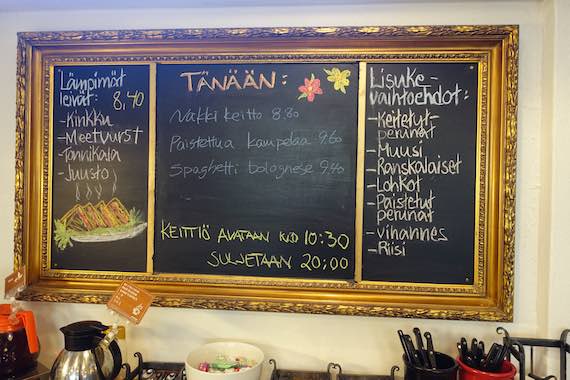 Lämpimät
leivät: 8,40
- Kinkku
- Meetvurst
- Tonnikala
- Juusto
TÄNÄÄN:
Nakki keitto 8.80
Paistettua kampelaa 9.60
Spaghetti bolognese 9.40
KEITTIÖ AVATAAN KLO 10:30
SULJETAAN 20:00
Lisuke-
vaihtoehdot:
- Keitetut-
perunat
- Muusi
- Ranskalaiset
- Lohkot
- Paistetut
perunat
- vihannes
- Riisi